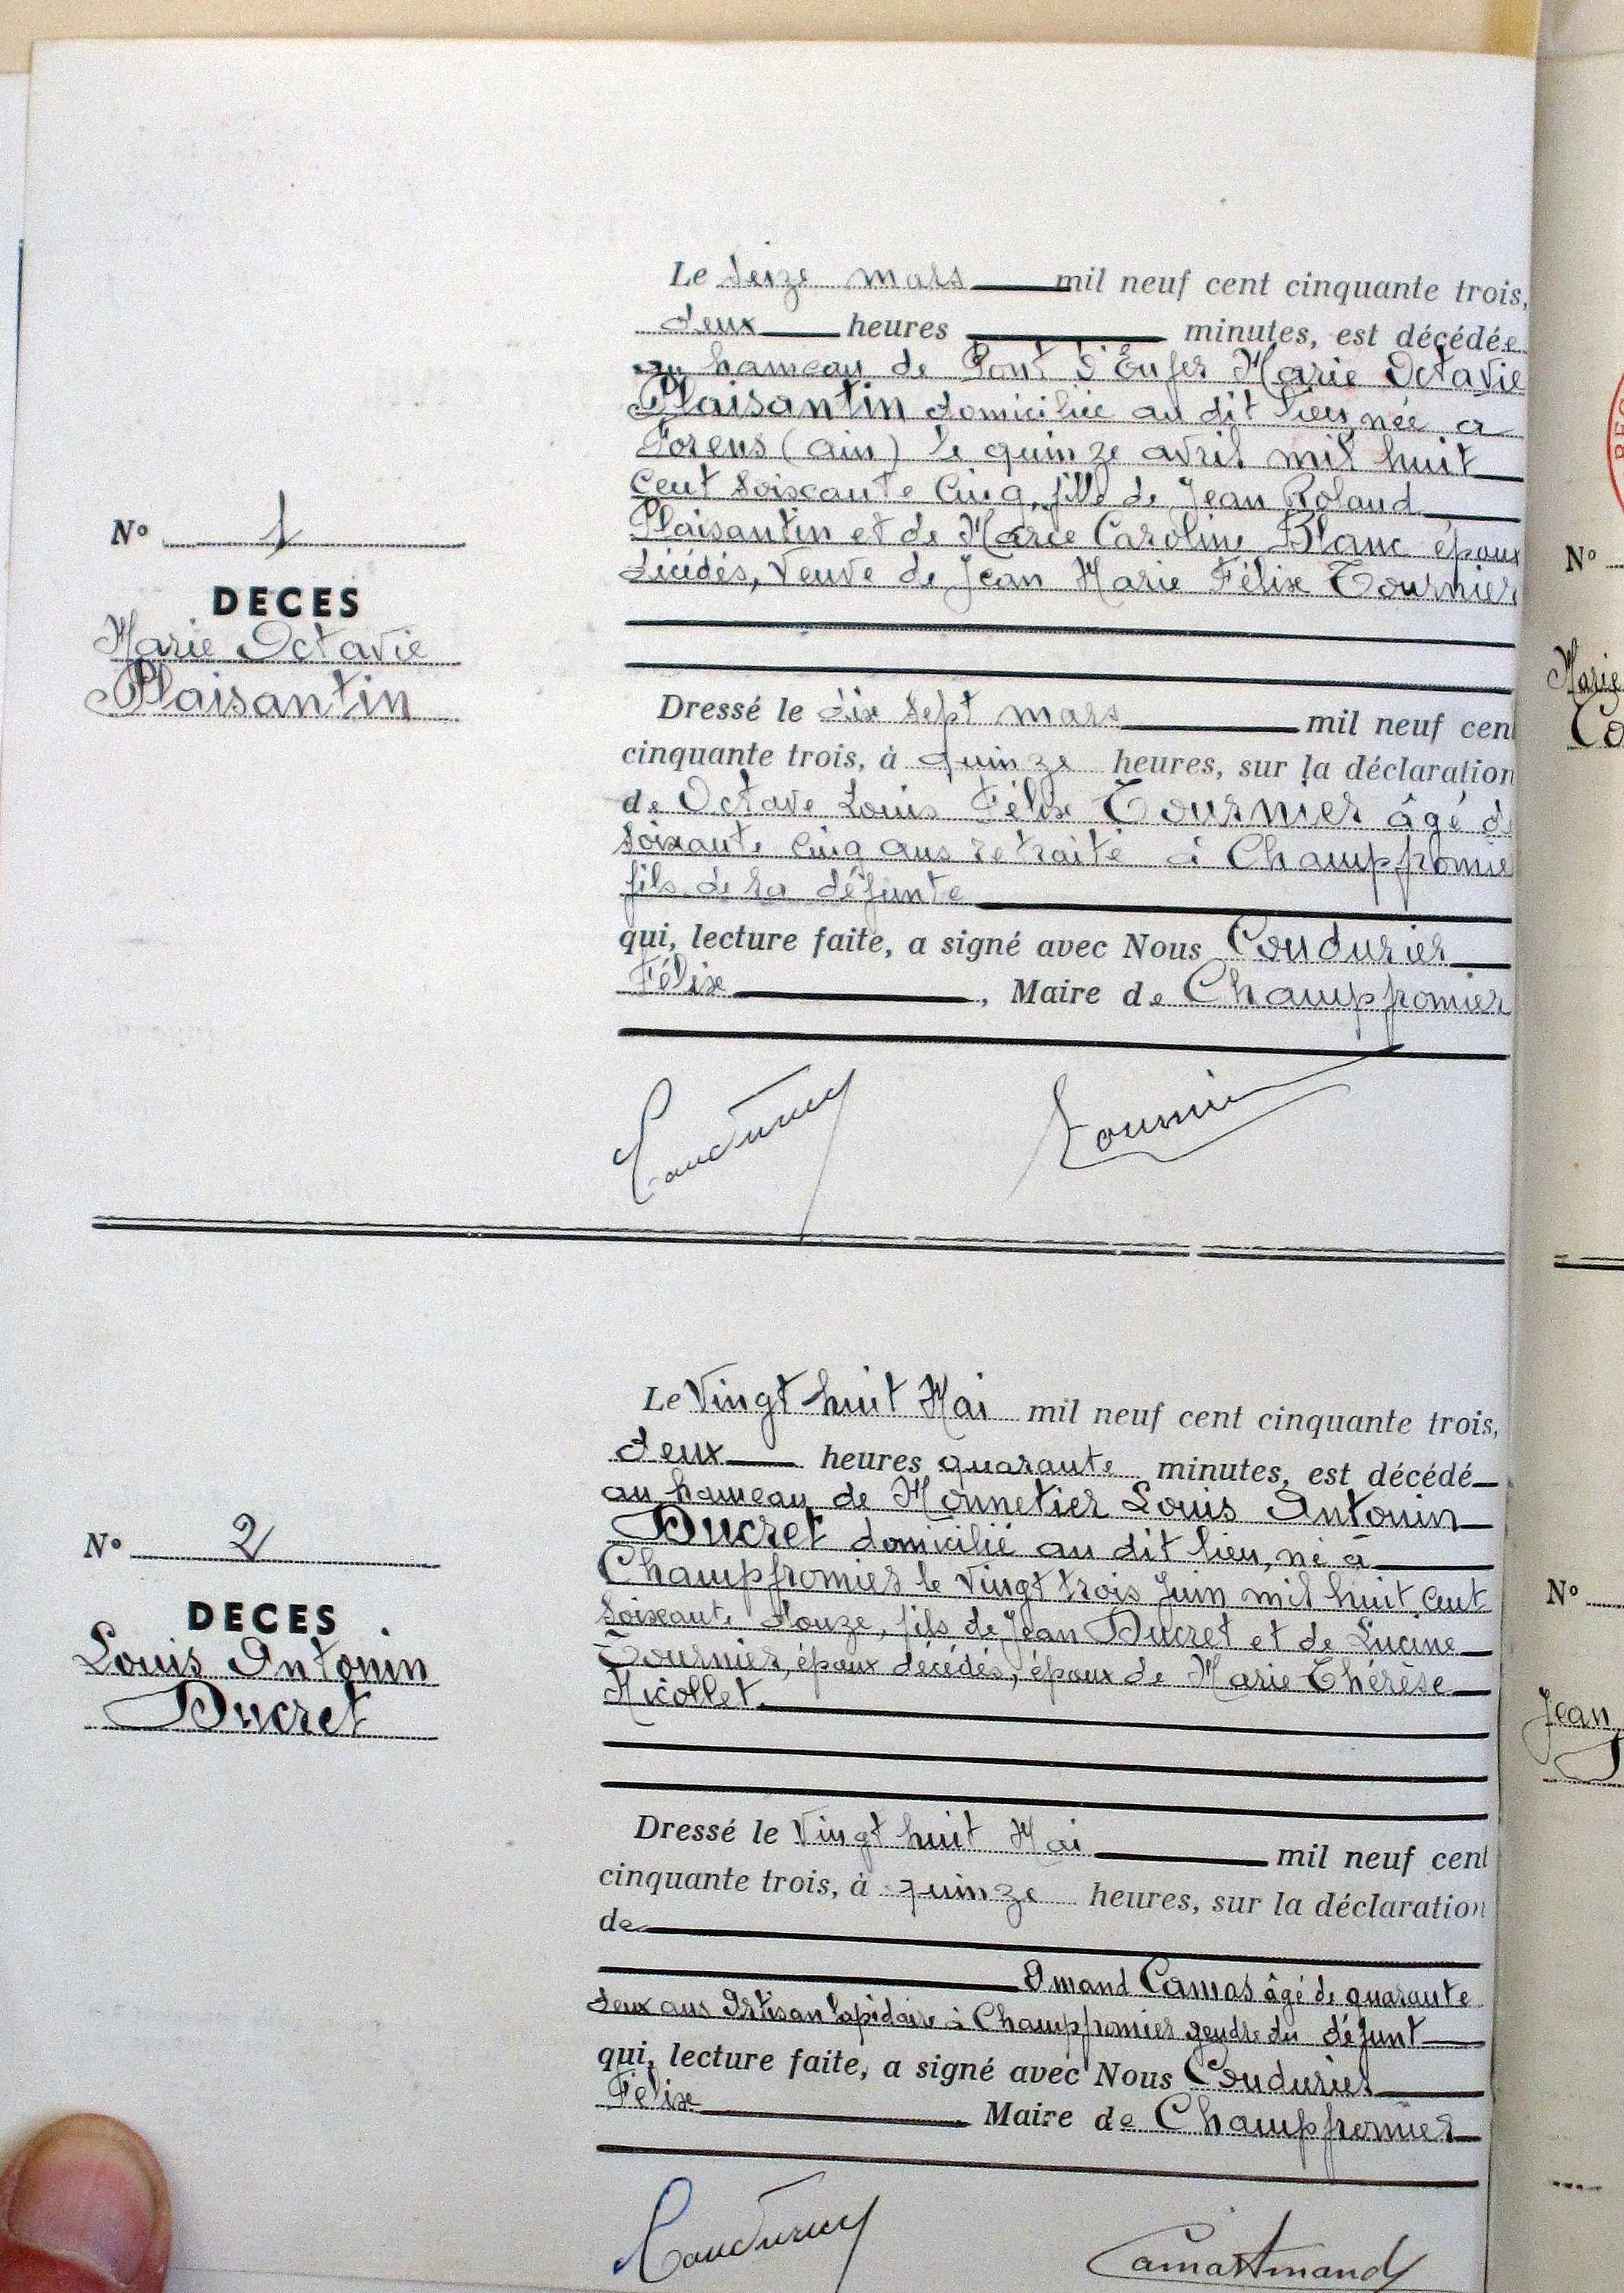 Le Seize mars mil neuf cent cinquante trois,
deux heures minutes, est décédée
au hameau de Pont d'Enfer Marie Octavie
Plaisantin domiciliée au dit lieu, née à
Forens (ain) le quinze avril mil huit
Cent soixante Cinq, fille de Jean Roland
Plaisantin et de Marie Caroline Blanc époux
décédés, Veuve de Jean Marie Félix Tournier
N° 1
DECES
Marie Octavie
Plaisantin
Dressé le dix sept mars mil neuf cent
cinquante trois, à quinze heures, sur la déclaration
de Octave Louis Félix Tournier âgé de
soixante cinq ans retraité à Champfromier
fils de la défunte
qui, lecture faite, a signé avec Nous Coudurier
Félix, Maire de Champfromier
Coudurier Tournier
Le Vingt huit Mai mil neuf cent cinquante trois,
deux heures quarante minutes, est décédé
au hameau de Monnetier Louis Antonin
Ducret domicilié au dit lieu, né à
Champfromier le vingt trois Juin mil huit cent
soixante douze, fils de Jean Ducret et de Lucine
Tournier, époux décédés, époux de Marie Thérèse
Nicollet.
N° 2
DECES
Louis Antonin
Ducret
Dressé le Vingt huit Mai mil neuf cent
cinquante trois, à quinze heures, sur la déclaration
de
Amand Camas âgé de quarante
deux ans Artisan lapidaire à Champfromier gendre du défunt
qui, lecture faite, a signé avec Nous Coudurier
Félix Maire de Champfromier
Coudurier Camas Amand
N°
Marie
N°
Jean